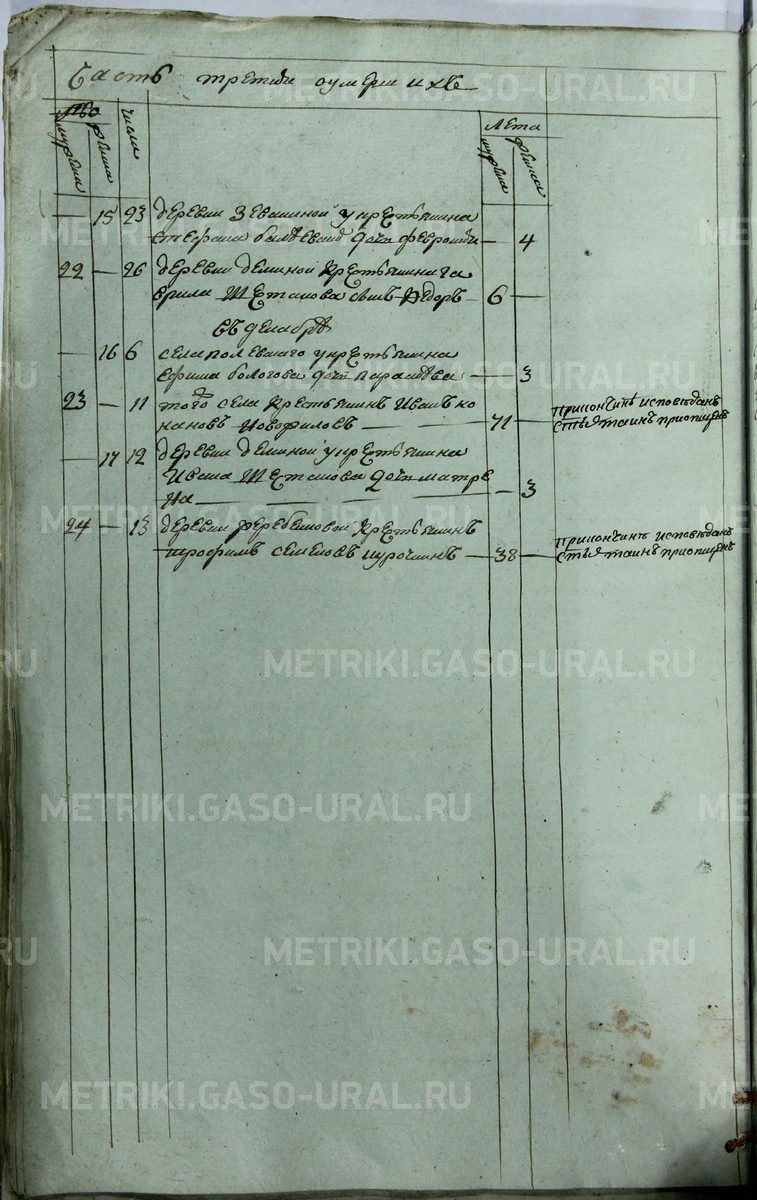 Часть третия о умерших
муж женска числа
лета
мужеска женска
— 15 23 деревни Зевакиной у крестьянина
Стефана дочь Феврониа — 4
22 — 26 деревни Деминой крестьянина Га
врила Шестакова сынъ Ѳедоръ — 6 —
въ декабрѣ
— 16 6 села Полевского у крестьянина
Ефима Бологова дочь Параскева — 3
23 — 11 того села крестьянинъ Иванъ Ко
нановъ Новофиловъ — 71 —
при кончинѣ исповѣданъ
святыхъ таинъ приобщенъ
— 17 12 деревни Деминой у крестьянина
Ивана Шестакова дочь Матре
на — 3
24 — 13 деревни крестьянинъ
Трофимъ Семеновъ Курочкинъ — 38 —
при кончинѣ исповѣданъ
святыхъ таинъ приобщенъ
METRIKI.GASO-URAL.RU